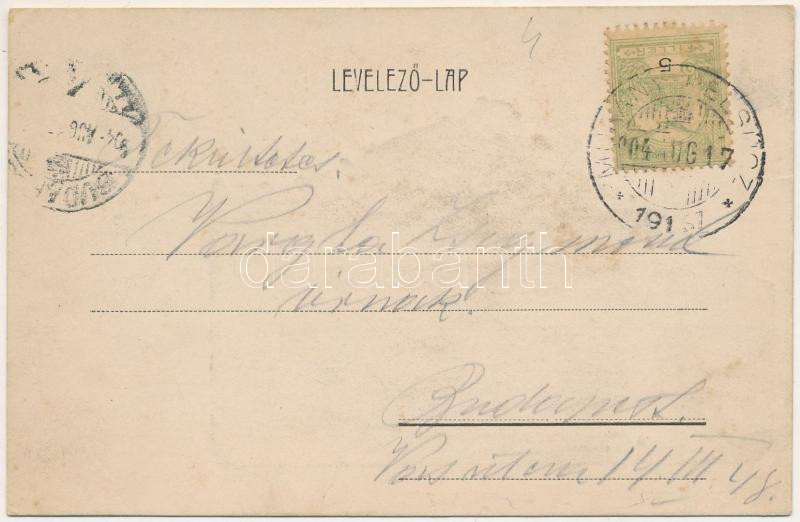 LEVELEZŐ-LAP
FILLER
5
904 AUG 17
191
Tekintetes
Vargha Zsigmond
úrnak
Budapest.
Vas utca 14 III. 48.
darabanth